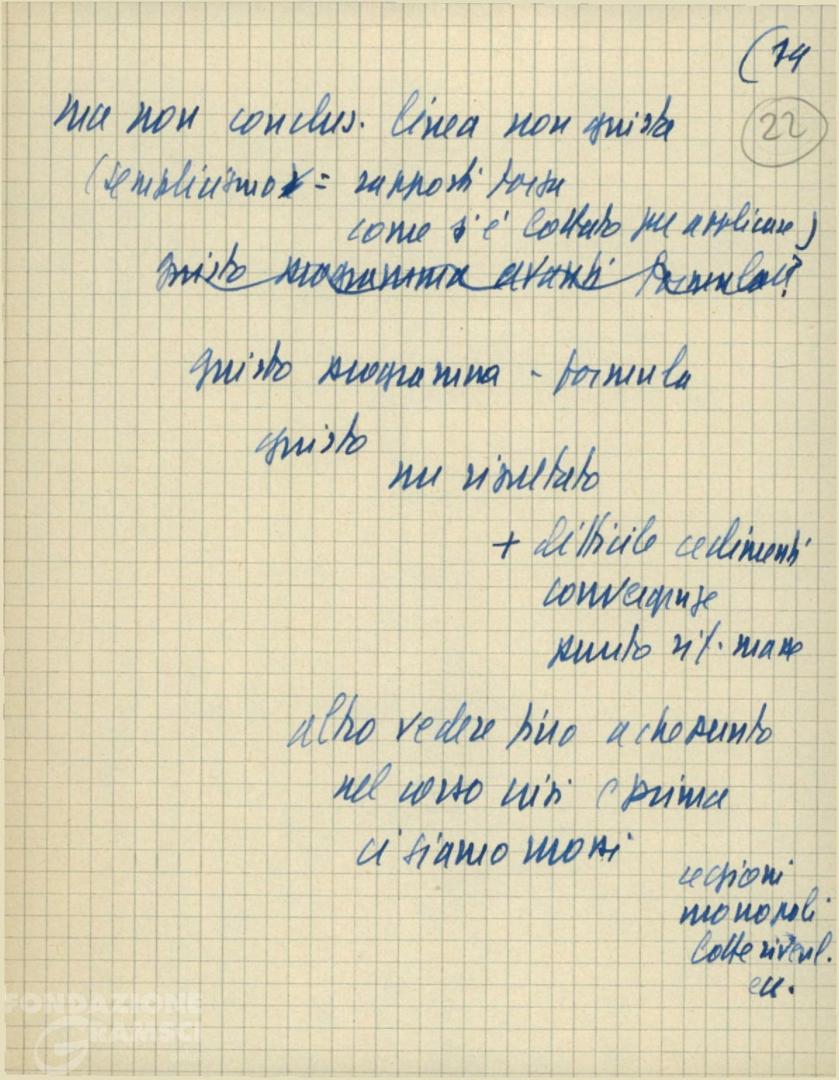 (14
22
ma non conclus. linea non giusta
(semplicismo = rapporti forza
come si è lottato per applicare)
giusto programma avanti formula?
giusto programma - formula
giusto
ma risultato
+ difficile cedimenti
convergenze
punto rif. masse
altro vedere fino a che punto
nel corso crisi e prima
ci siamo mossi
regioni
monopoli
lotte rivend.
ecc.
FONDAZIONE
GRAMSCI